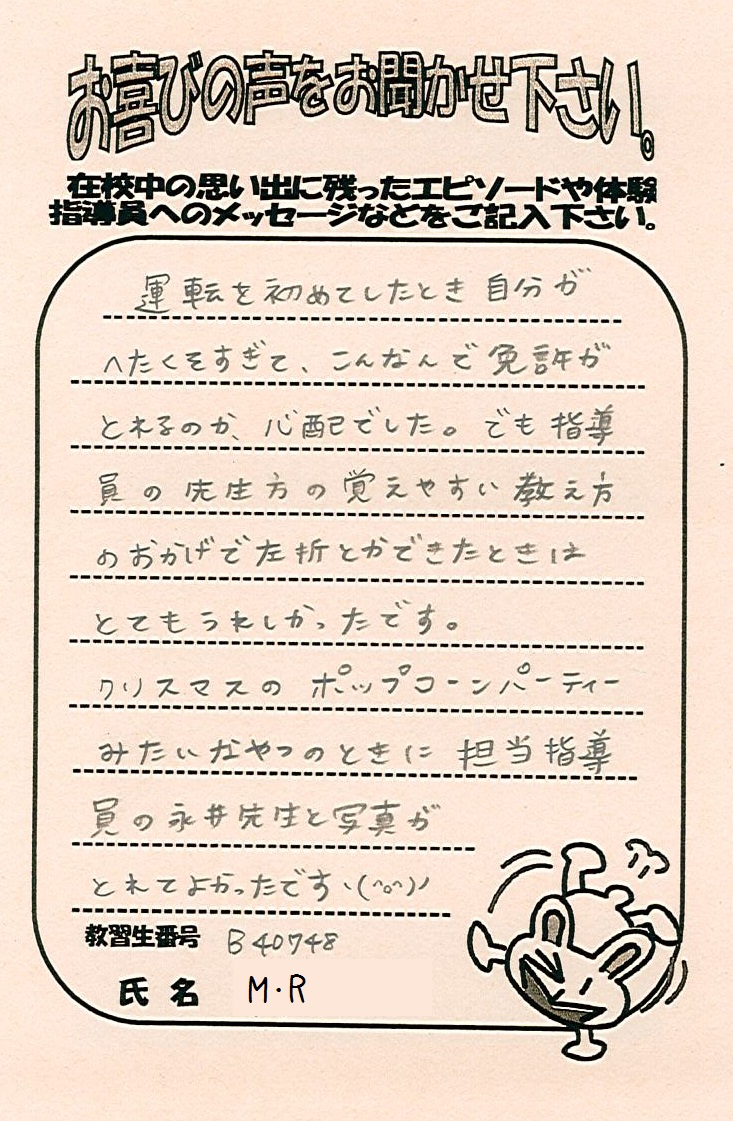 お喜びの声をお聞かせ下さい。
在校中の思い出に残ったエピソードや体験
指導員へのメッセージなどをご記入下さい。
運転を初めてしたとき自分が
へたくそすぎて、こんなんで免許が
とれるのか、心配でした。でも指導
員の先生方の覚えやすい教え方
のおかげで左折とかできたときは
とてもうれしかったです。
クリスマスのポップコーンパーティー
みたいなやつのときに担当指導
員の永井先生と写真が
とれてよかったですヽ(^o^)ノ
教習生番号 B40748
氏名 M・R